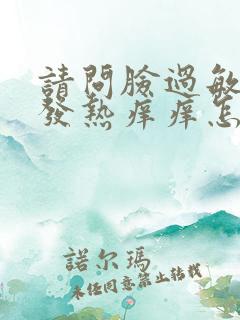 請問臉過敏
發熱痒痒怎
諾尔瑪
未任同意禁止转载